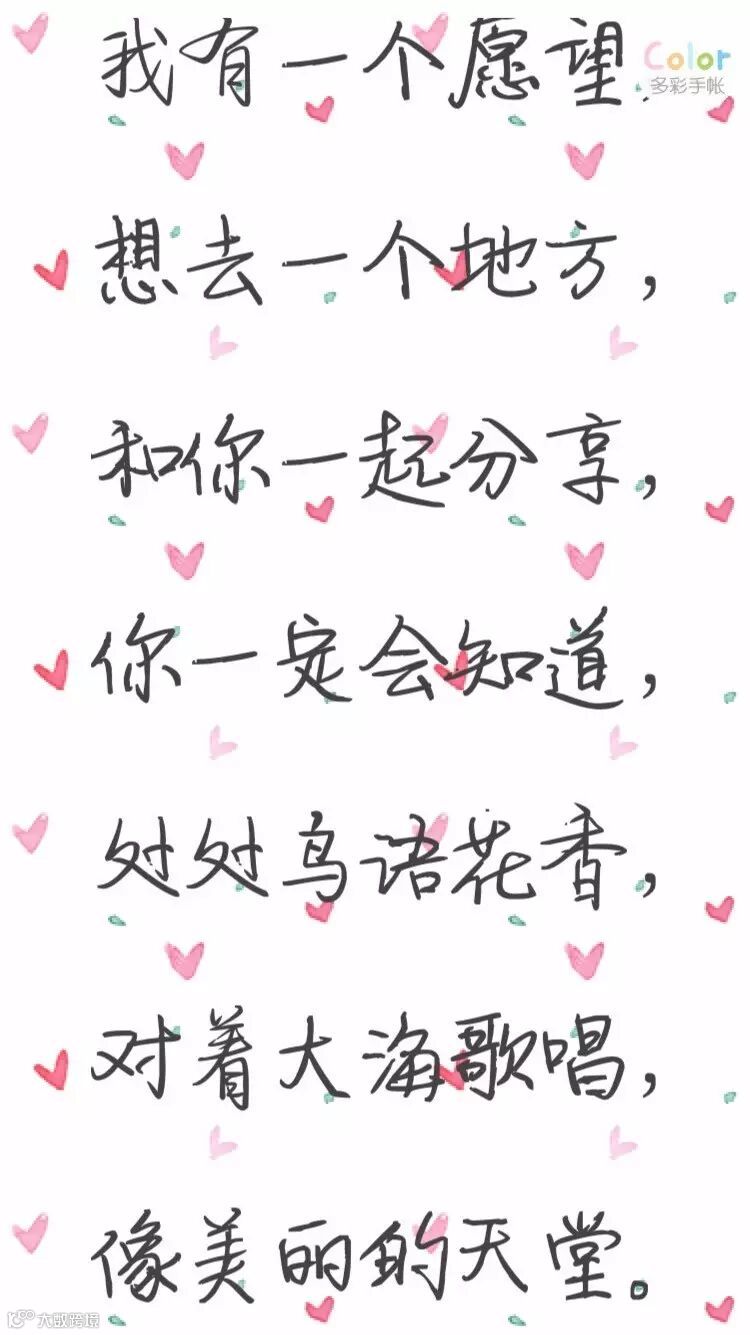 我有一个愿望
Color
多彩手帐
想去一个地方，
和你一起分享，
你一定会知道，
处处鸟语花香，
对着大海歌唱，
像美丽的天堂。
大数跨境